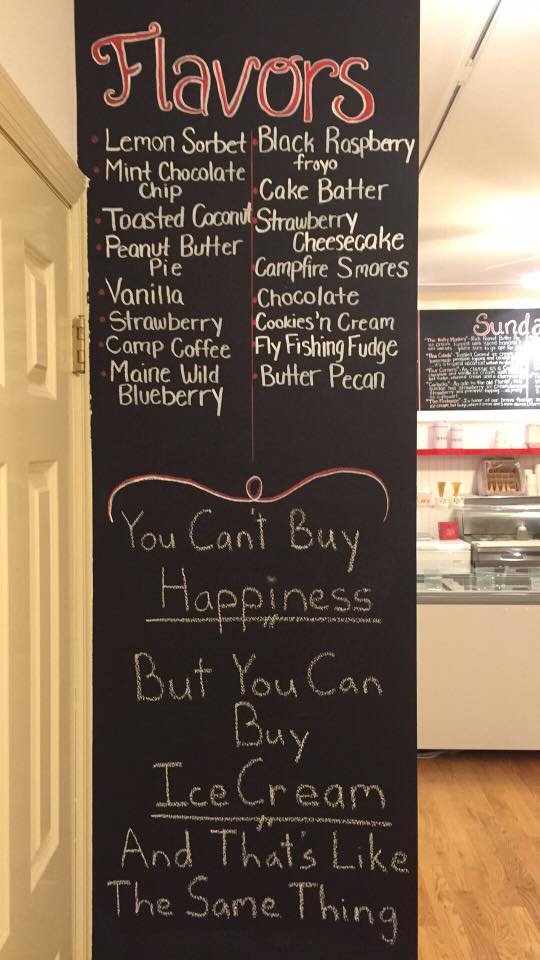 Flavors
Lemon Sorbet
Mint Chocolate
Chip
Toasted Coconut
Peanut Butter
Pie
Vanilla
Strawberry
Camp Coffee
Maine Wild
Blueberry
Black Raspberry
froyo
Cake Batter
Strawberry
Cheesecake
Campfire Smores
Chocolate
Cookies'n Cream
Fly Fishing Fudge
Butter Pecan
You Can't Buy
Happiness
But You Can
Buy
Ice Cream
And That's Like
The Same Thing
Sunda